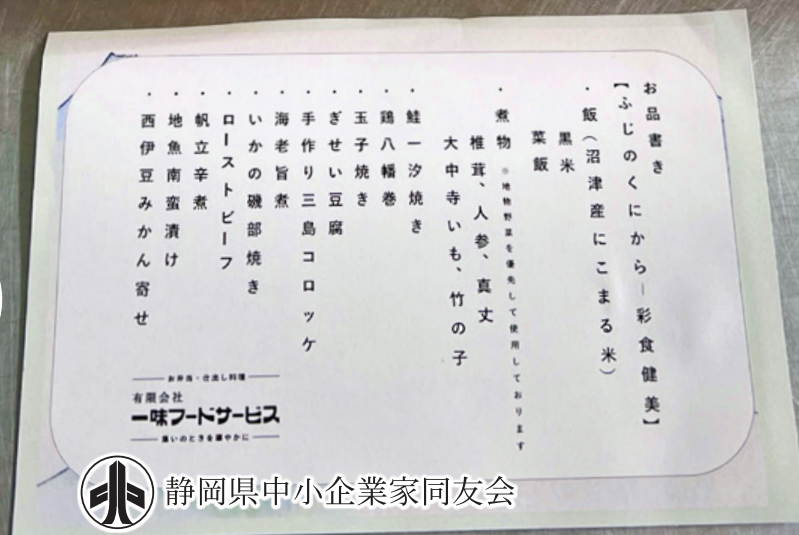 お品書き
【ふじのくにから―彩食健美】
・飯（沼津産にこまる米）
黒米
菜飯
・煮物 ※地物野菜を優先して使用しております
椎茸、人参、真丈
大中寺いも、竹の子
・鮭一汐焼き
・鶏八幡巻
・玉子焼き
・ぎせい豆腐
・手作り三島コロッケ
・海老旨煮
・いかの磯部焼き
・ローストビーフ
・帆立辛煮
・地魚南蛮漬け
・西伊豆みかん寄せ
お弁当・仕出し料理
有限会社
一味フードサービス
集いのときを華やかに
静岡県中小企業家同友会